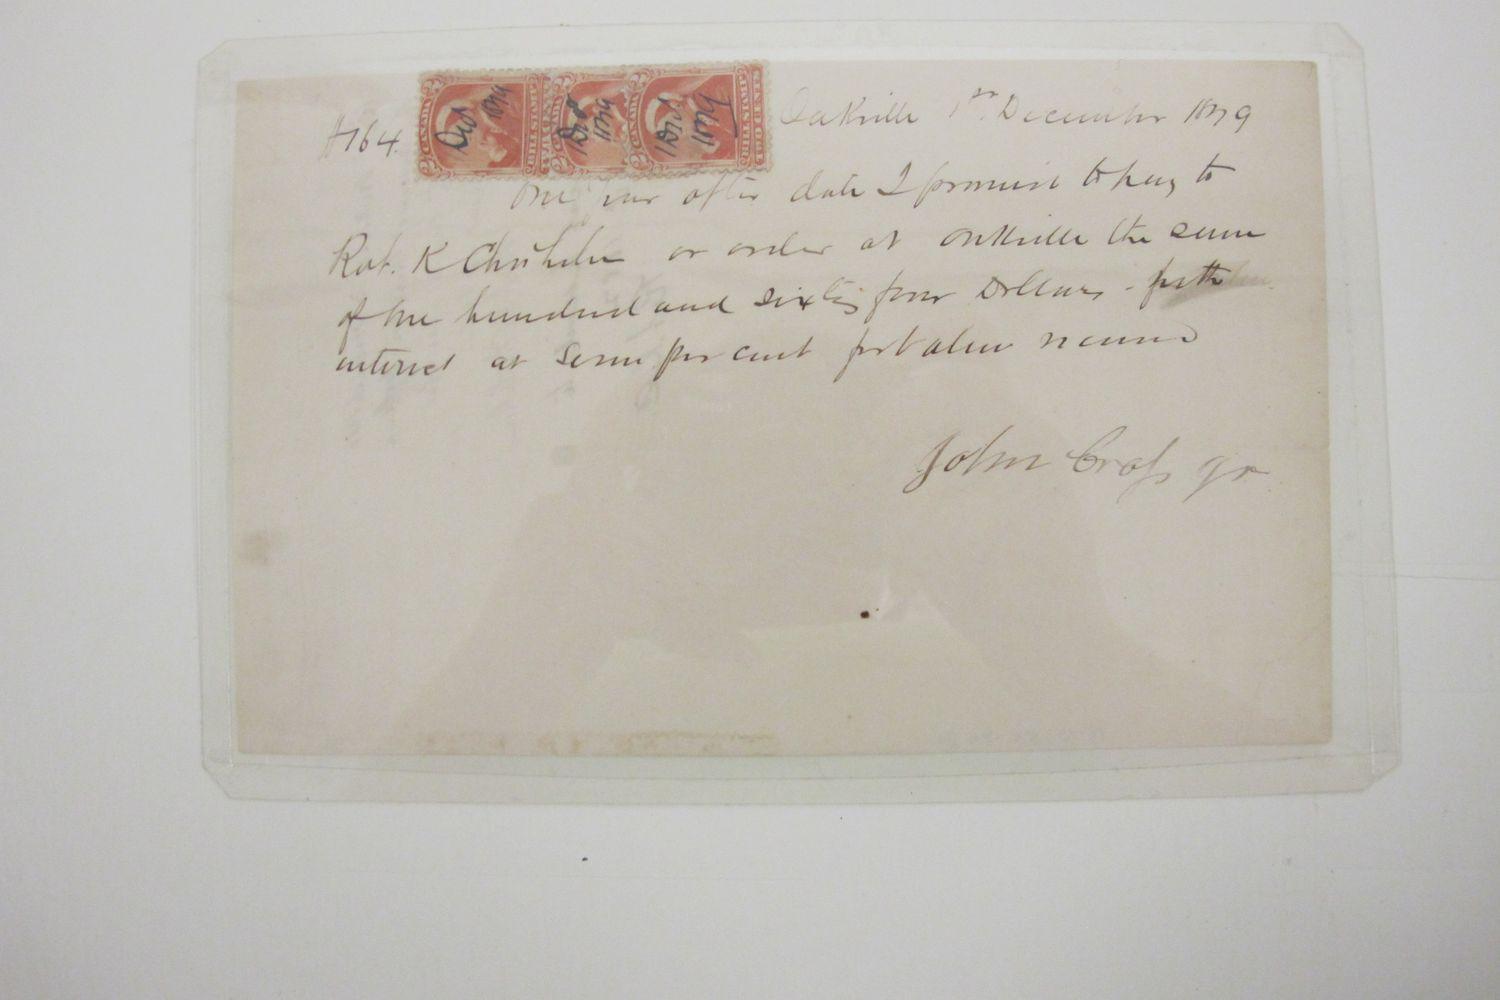 $164.
Oakville 1st December 1879
One year after date I promise to pay to
Rob. K Chisholm or order at Oakville the sum
of one hundred and sixty four Dollars - with
interest at seven per cent for value received
John Cross Jr
CANADA
Dec 1879
1 Dec 1879
1 Dec 1879